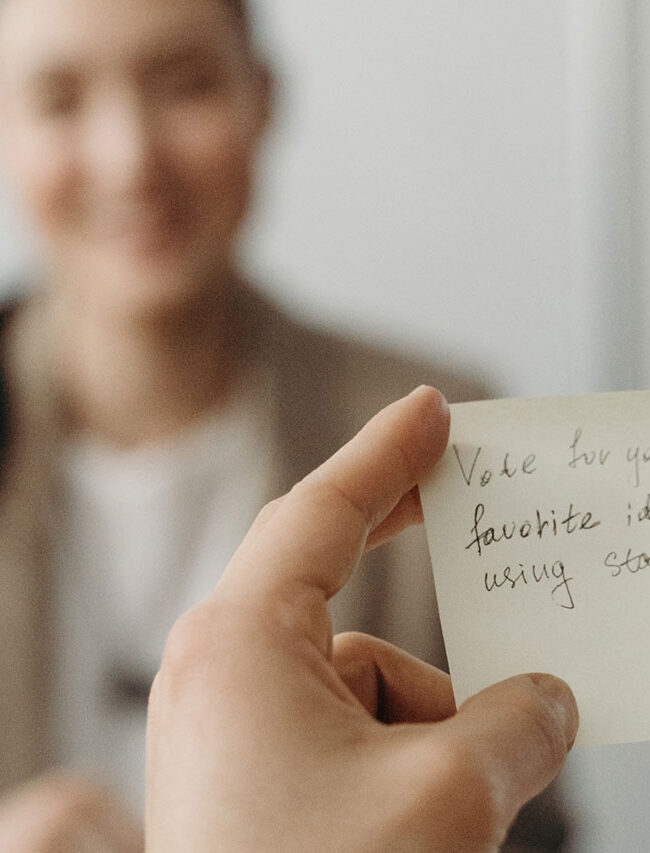 Vote for yo
favorite id
using sta